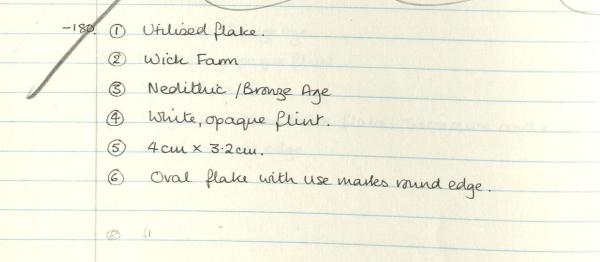 -180. ① Utilised flake.
② Wick Farm
③ Neolithic / Bronze Age
④ White, opaque flint.
⑤ 4cm x 3.2cm.
⑥ Oval flake with use marks round edge.